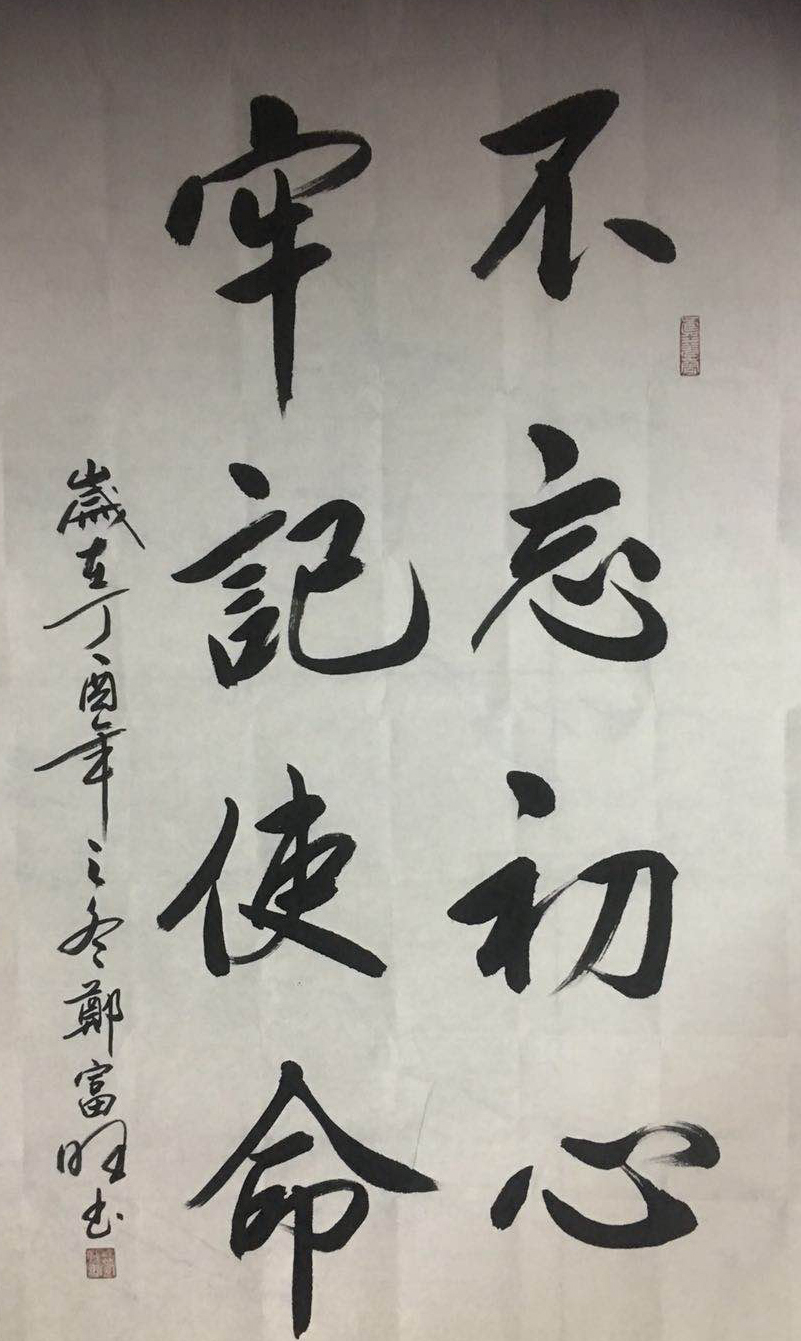 不忘初心
牢記使命
歲在丁酉年之冬鄭富旺书